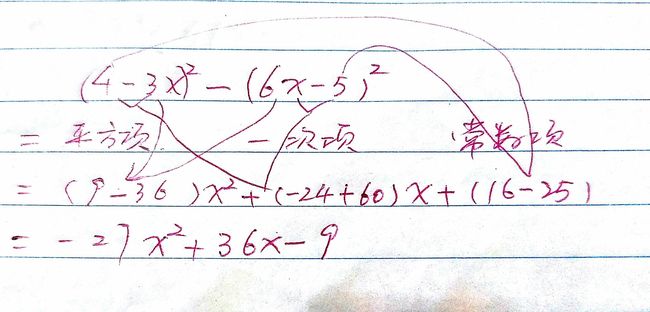 (4-3x)²-(6x-5)²
= 平方项 一次项 常数项
= (9-36)x²+(-24+60)x+(16-25)
= -27x²+36x-9